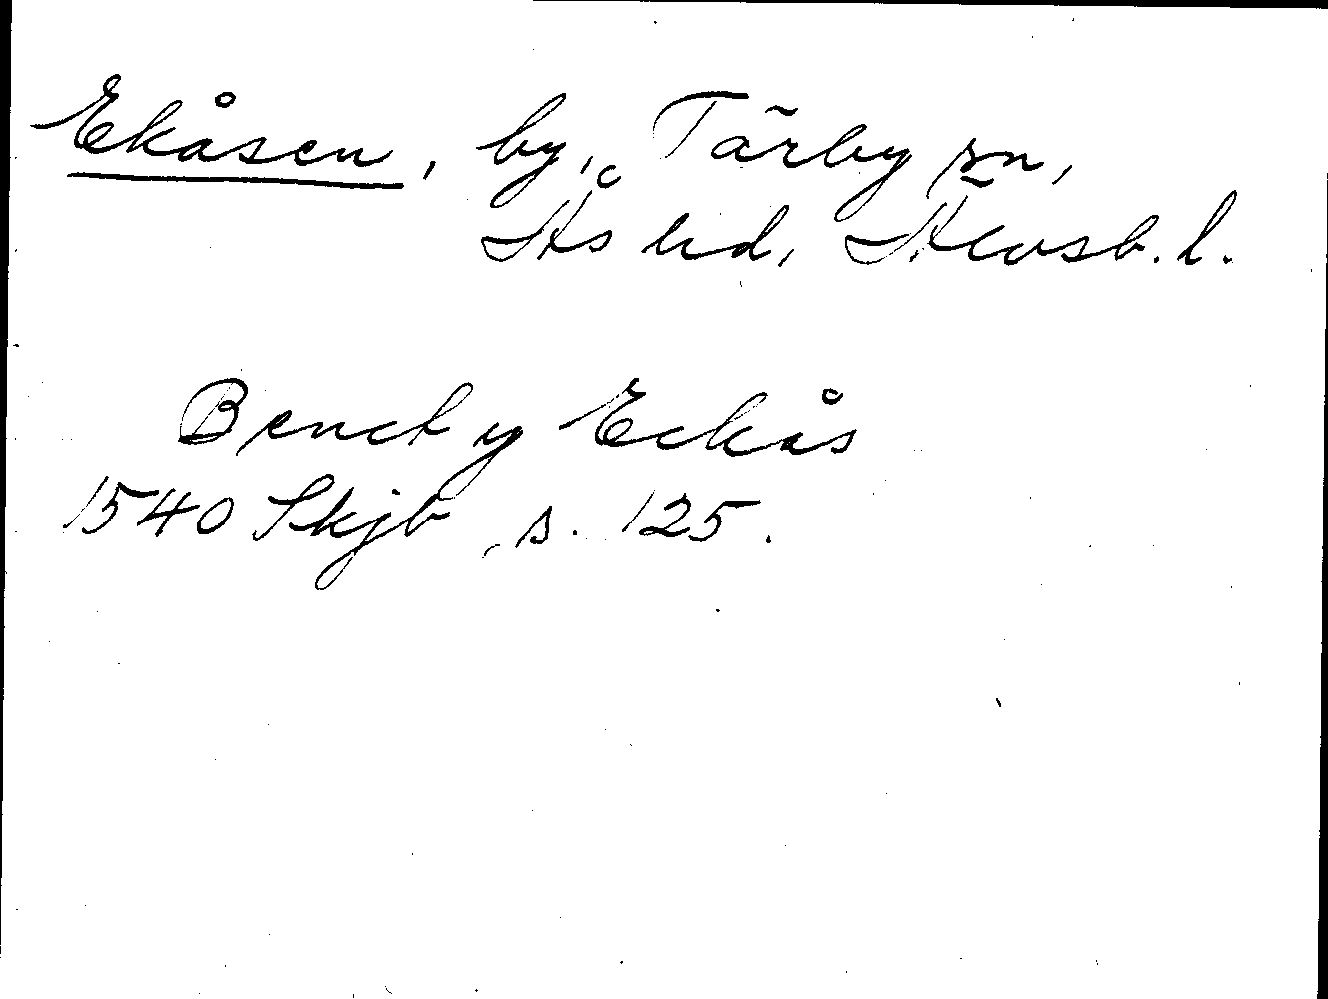 Ekåsen, by, Tärby sn,
Ås hd, Älvsb. l.
Benct y Eckås
1540 Skjb, s. 125.